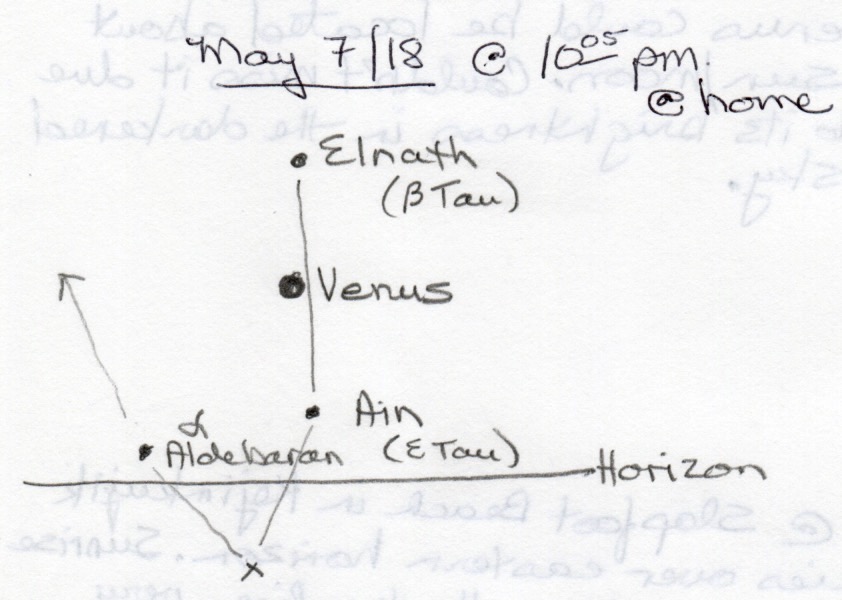 May 7/18 @ 10:05 pm.
@ home
Elnath
(β Tau)
Venus
Ain
(ε Tau)
α
Aldebaran
Horizon
x